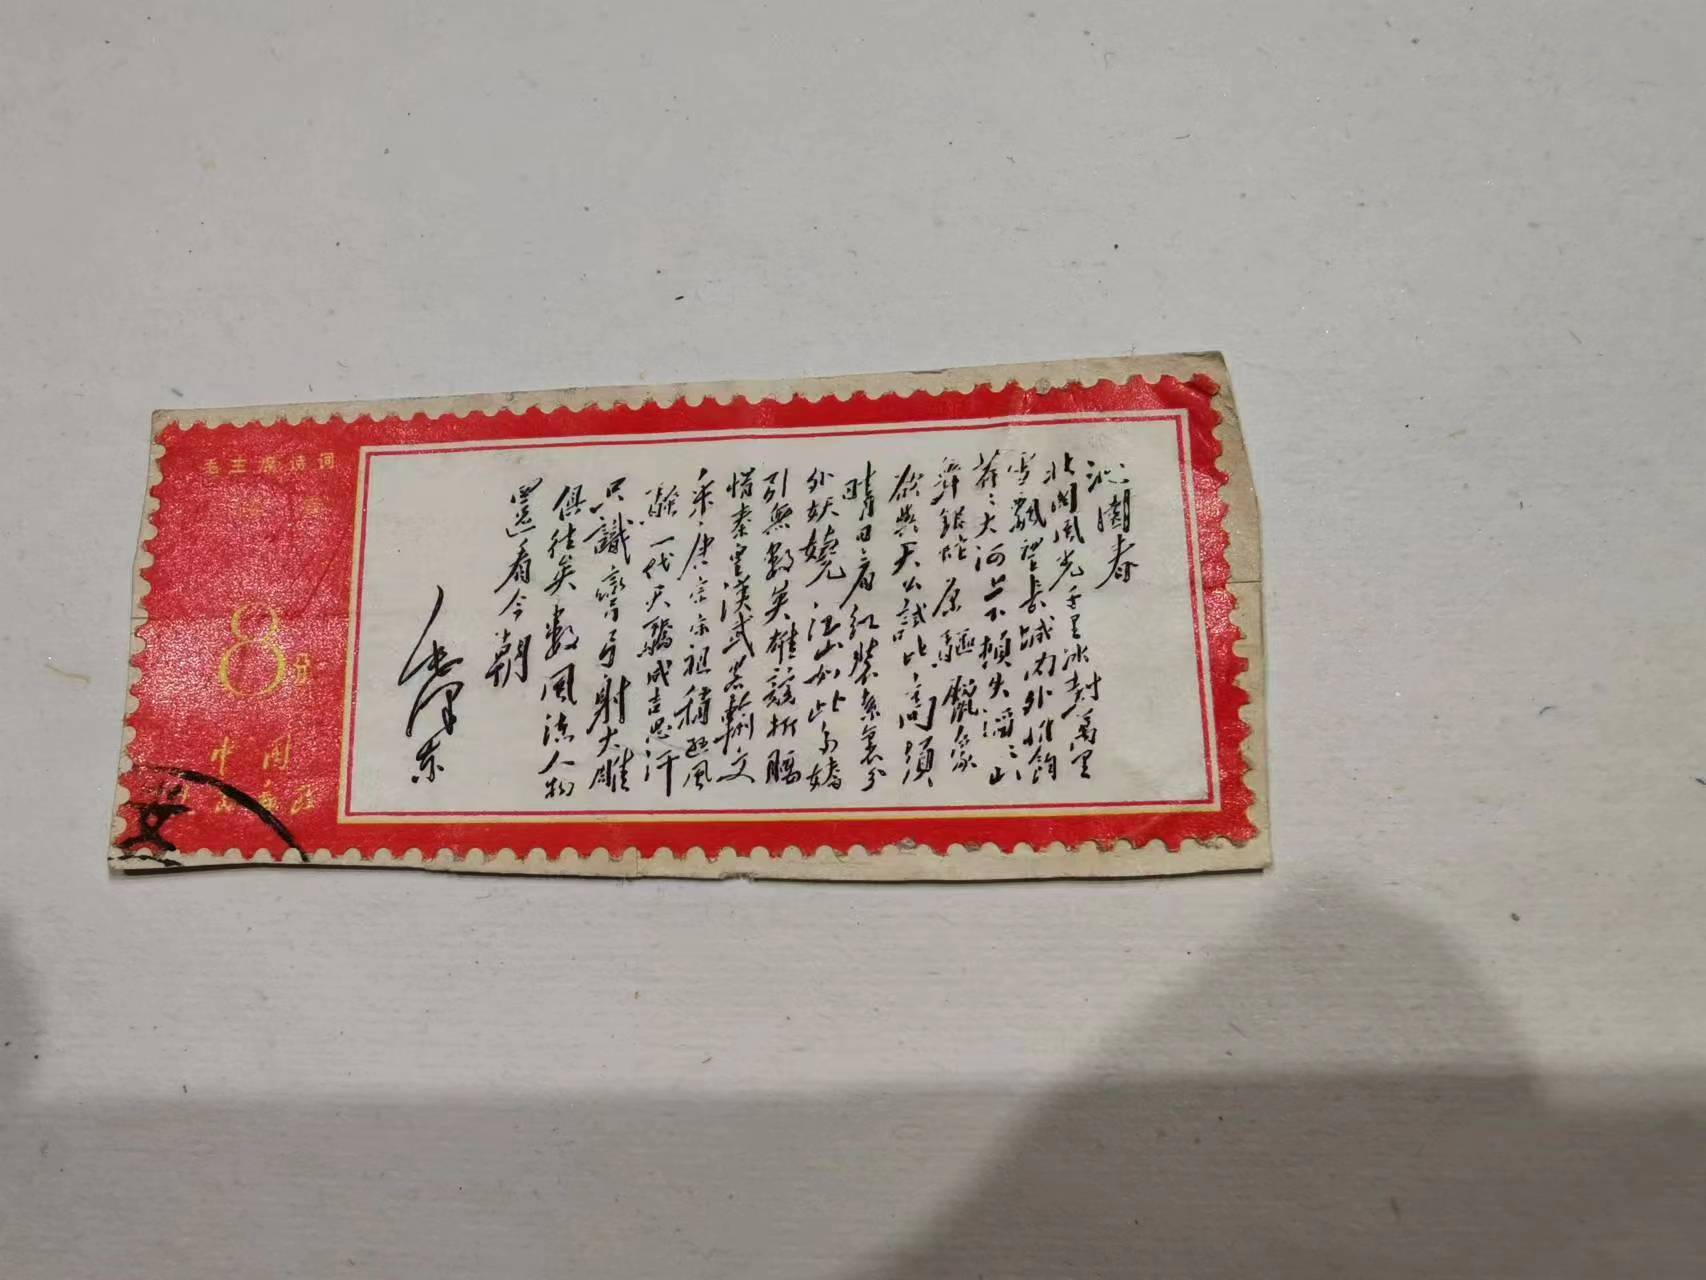 毛主席诗词
8分
中国
人民邮政
沁園春
北國風光千里冰封萬里
雪飄望長城内外惟餘
莽〻大河上下頓失滔〻山
舞銀蛇原驅臘象
欲與天公試比高須
晴日看紅裝素裹分
外妖嬈江山如此多嬌
引無數英雄競折腰
惜秦皇漢武畧輸文
采唐宗宋祖稍遜風
騷一代天驕成吉思汗
只識彎弓射大雕
俱往矣數風流人物
還看今朝
毛澤东